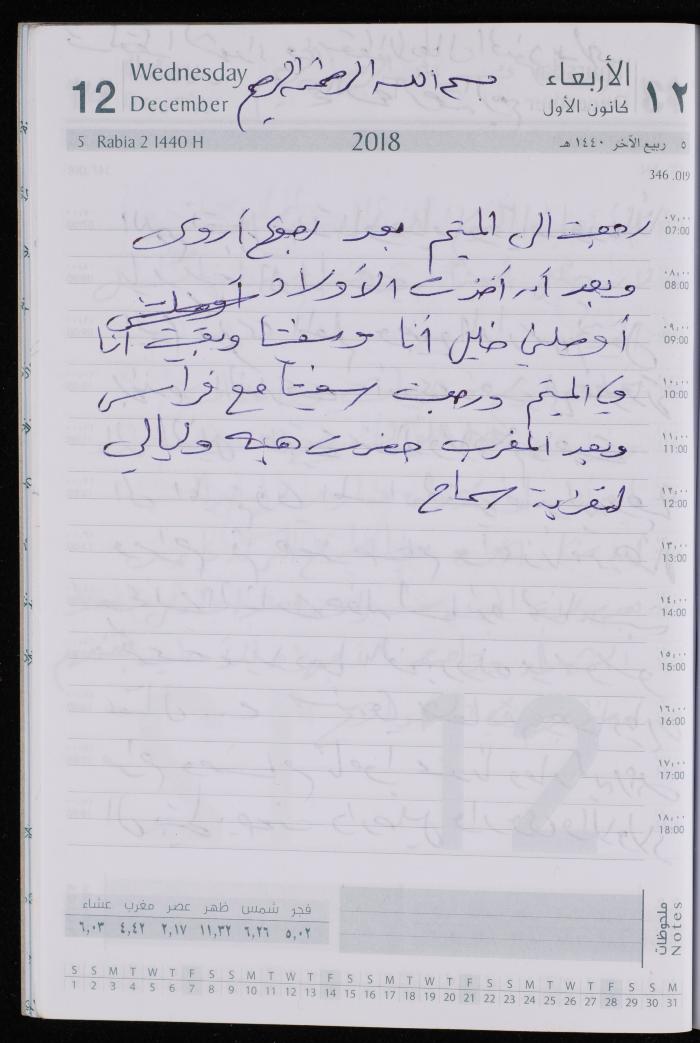 12 Wednesday December بسم الله الرحمن الرحيم الأربعاء كانون الأول ١٢
5 Rabia 2 1440 H 2018 ٥ ربيع الآخر ١٤٤٠ هـ
346 .019
٠٧,٠٠
07:00
رجعت الى الميتم بعد رجوع أروى
٠٨,٠٠
08:00
وبعد أن أخذت الأولاد
٠٩,٠٠
09:00
أوصلني خليل أنا وسفتا وبقيت أنا
١٠,٠٠
10:00
في الميتم ورجعت سفيتا مع فراس
١١,٠٠
11:00
وبعد المغرب حضرت هبه وليالي
١٢,٠٠
12:00
لتعزية سماح
١٣,٠٠
13:00
١٤,٠٠
14:00
١٥,٠٠
15:00
١٦,٠٠
16:00
١٧,٠٠
17:00
١٨,٠٠
18:00
12
ملحوظات
Notes
فجر شمس ظهر عصر مغرب عشاء
٥,٠٢ ٦,٢٦ ١١,٣٢ ٢,١٧ ٤,٤٢ ٦,٠٣
S S M T W T F S S M T W T F S S M T W T F S S M T W T F S S M
1 2 3 4 5 6 7 8 9 10 11 12 13 14 15 16 17 18 19 20 21 22 23 24 25 26 27 28 29 30 31